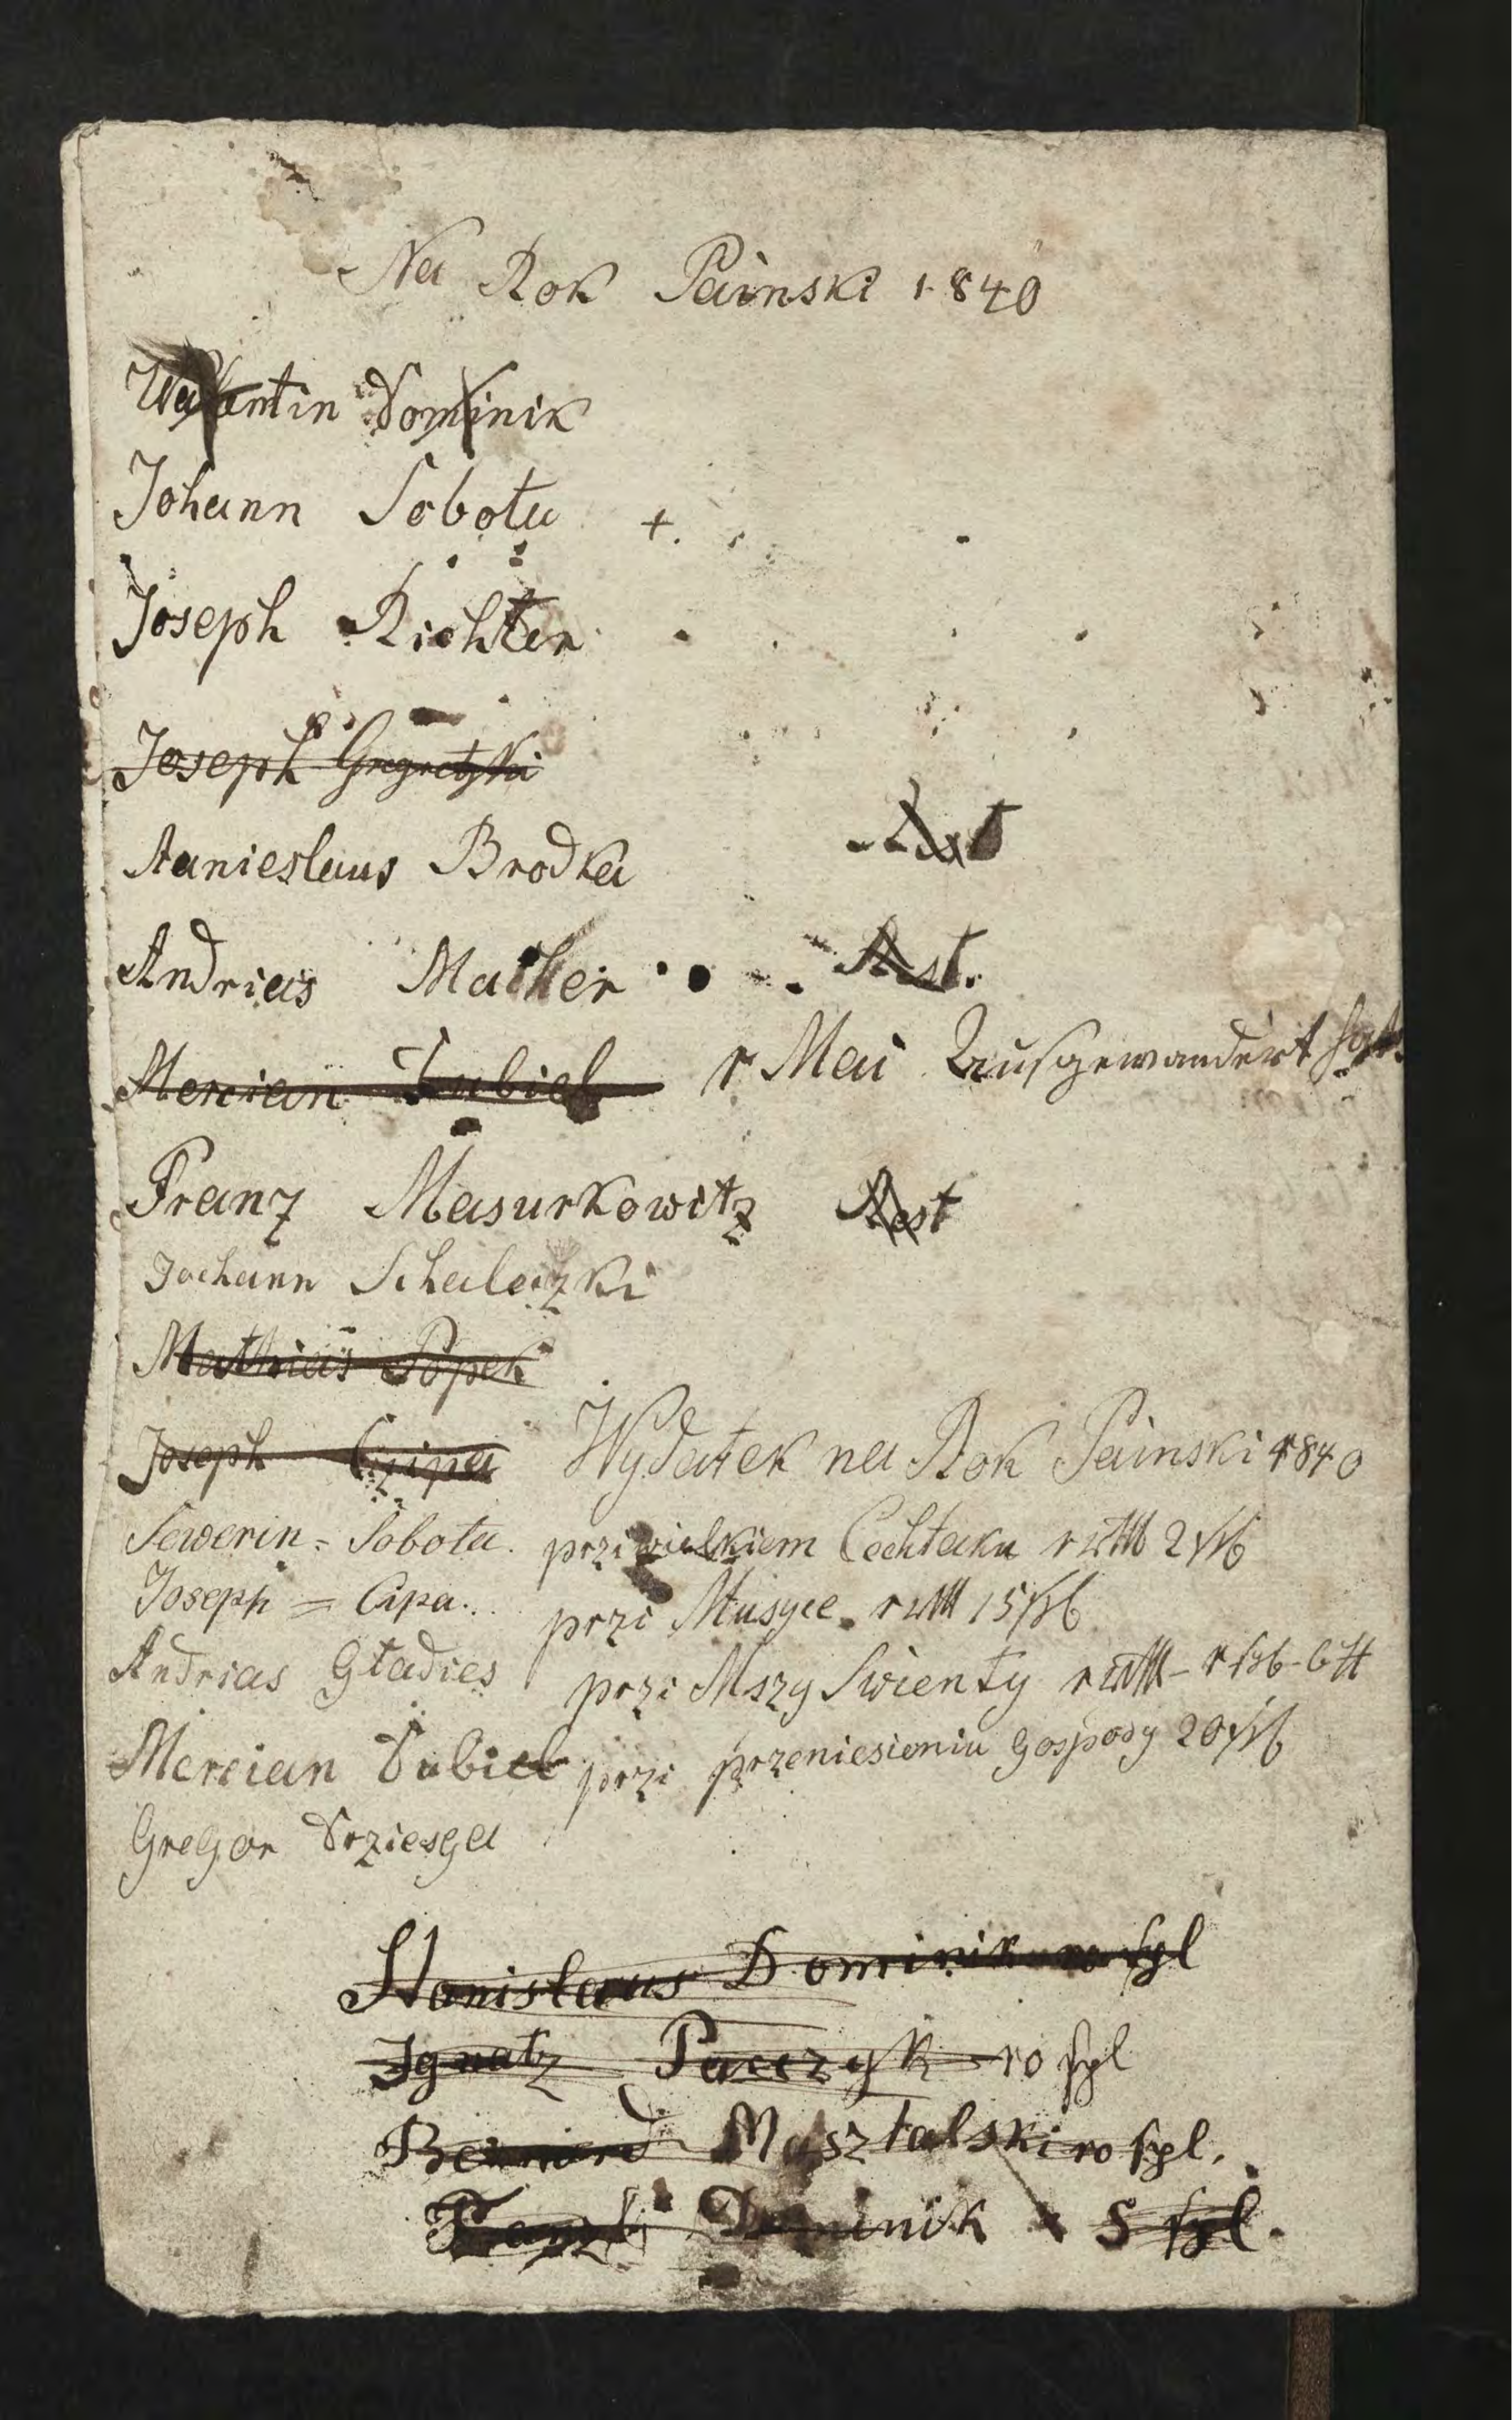 Na Rok Painski 1840
Walentin Dominik
Johann Sobota +.
Joseph Richter
Joseph
Stanieslaus Brodka Rest
Andrias Rest.
Mercian Dubiel r Mai Ausgewandert
Franz Masurkowitz Rest
Johann Schaletzki
Mathias Popek
Joseph Czipa
Sewerin = Sobota.
Joseph = Cipa..
Andrias Gladies
Mercian Dubiel
Gregor Drziesga
Wydatek na Rok Painski 1840
przi wielkiem Cechtaku
przi Musyce
przi Mszy Swienty
przi przeniesieniu Gospody
Stanislaus Dominik
Ignatz 10 sgl
Masztalski 10 sgl.
Dominik 5 sgl.